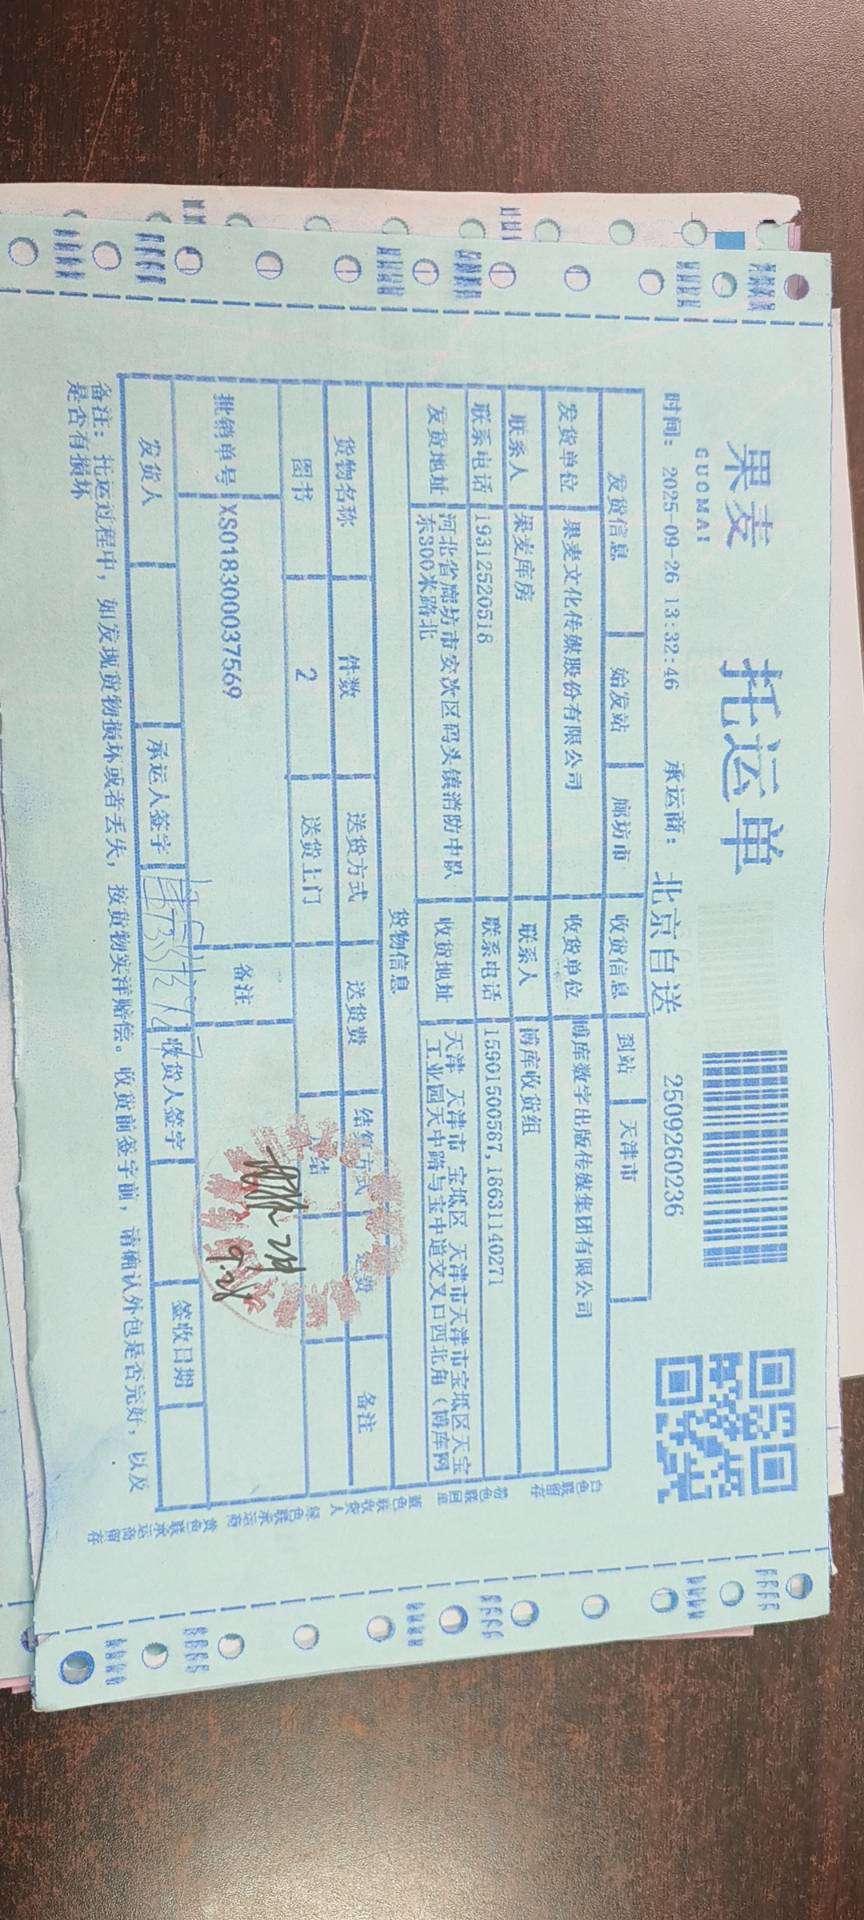 果麦
GUOMAI
托运单
时间： 2025-09-26 13:32:46 承运商： 北京自送 2509260236
发货信息 始发站 廊坊市 收货信息 到站 天津市
发货单位 果麦文化传媒股份有限公司 收货单位 博库数字出版传媒集团有限公司
联系人 果麦库房 联系人 博库收货组
联系电话 19312520518 联系电话 15901500567,18631140271
发货地址 河北省廊坊市安次区码头镇消防中队东300米路北 收货地址 天津 天津市 宝坻区 天津市天津市宝坻区天宝工业园天中路与宝中道交叉口西北角（博库网
货物信息
货物名称 件数 送货方式 送货费 结算方式 运费 备注
图书 2 送货上门 月结
批销单号 XS018300037569 备注
发货人 承运人签字 收货人签字 签收日期
备注：托运过程中，如发现货物损坏或者丢失，按货物实洋赔偿。收货前签字前，请确认外包是否完好，以及
是否有损坏
白色联留存
粉色联回单
蓝色联收货人
绿色联承运商
黄色联承运商留存